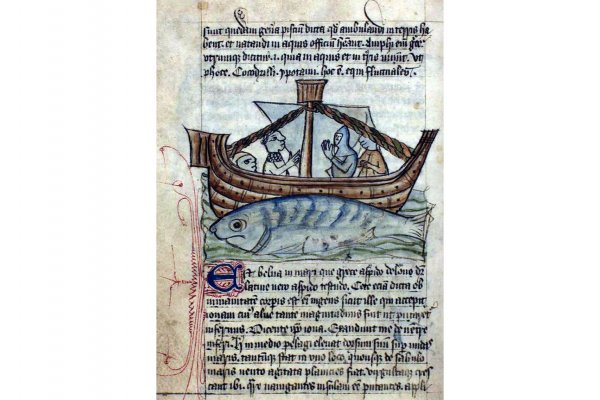 sunt quedam gen̄a pisciū dicta qd̄ ambulandi in terris ha
bent. et natandi in aquis officiū hēant. Amphi em̄ gre
utrumque dicitur. i. quia in aquis et in t̄ris vivūt. vt
phoce. Cocodrilli. ypotami. hoc ē. equi fluctuales.
Est belua in mari que grece aspido delone dr̄
latine vero aspido testudo. Cete eciā dicta ob
inmanitatē corpis est em̄ ingens sicut ille qui accepit
ionam cui' alve tante magnitudinis fuit ut putaret
infernus. Dicente ip̄o iona. Exaudivit me de ventre
inferi. in medio pelagi elevat dorsum suū sup undas
maris. tantūque stat in uno loco. quousque de sabulo
maris vento agitata planicies fiat. cres
cant ibi. navigantes insulam eē putantes. appli